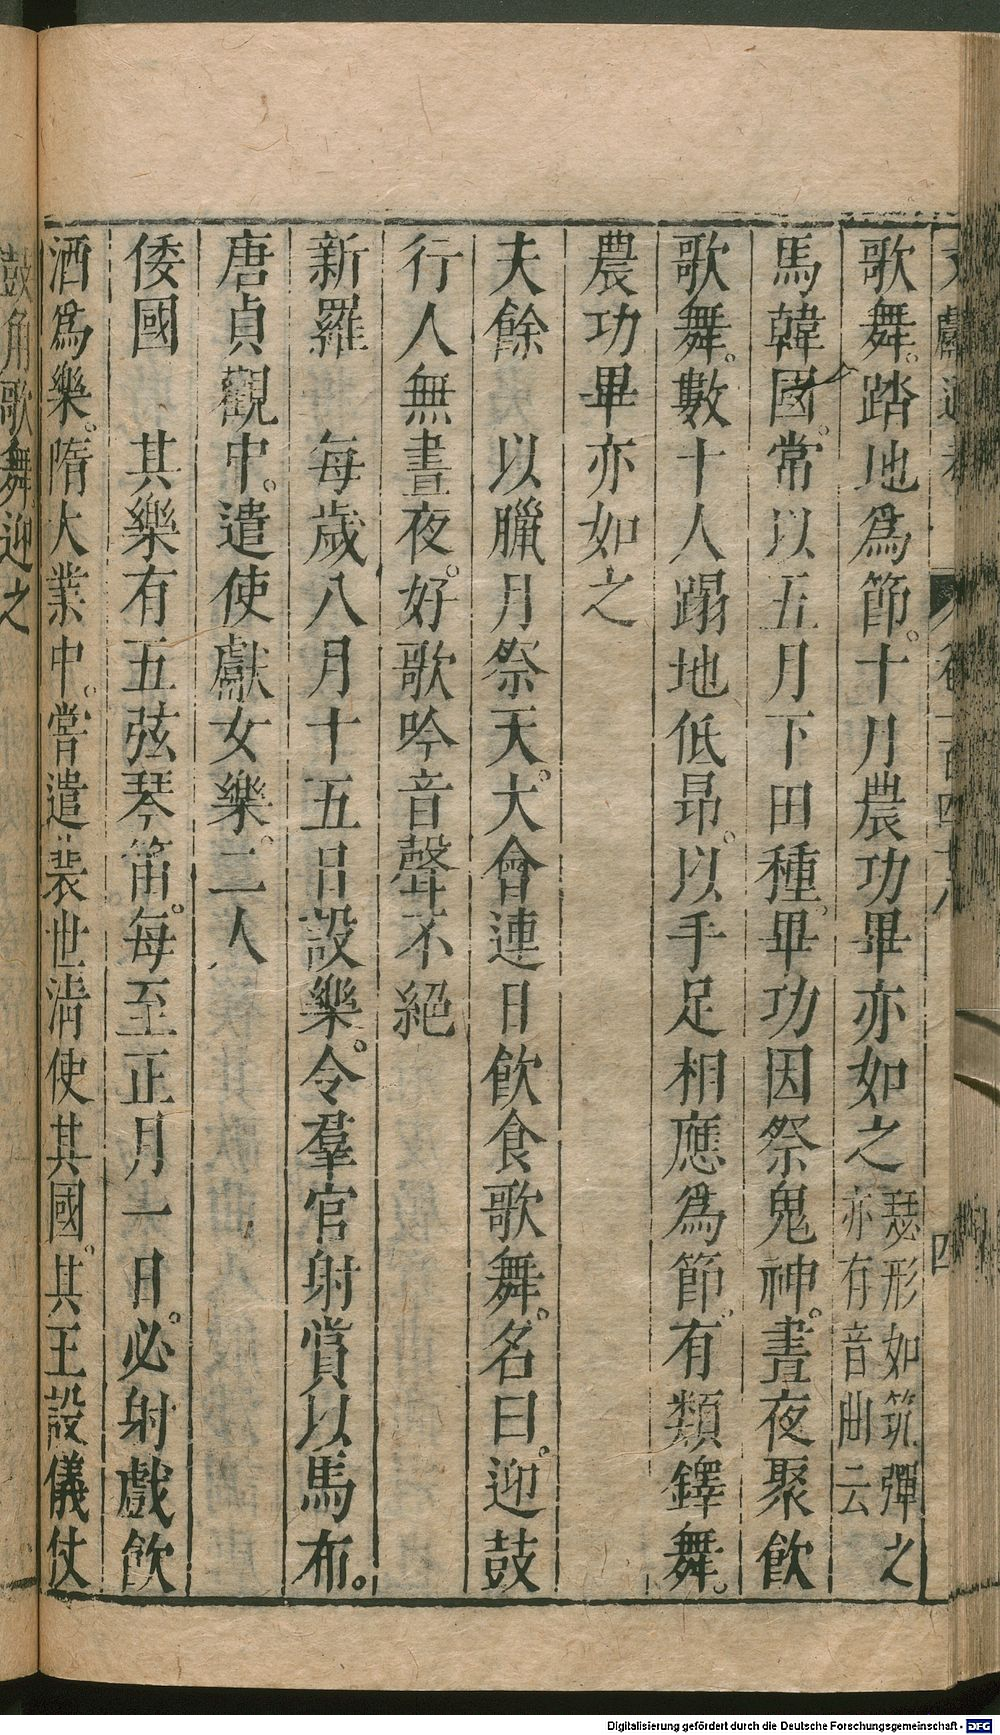 文獻通考 卷一百四十八 四
歌舞。踏地爲節。十月農功畢亦如之瑟形如筑彈之亦有音曲云
馬韓國。常以五月下田種。畢功因祭鬼神。晝夜聚飲
歌舞。數十人蹋地低昂。以手足相應爲節。有類鐸舞。
農功畢亦如之
夫餘 以臘月祭天。大會連日飲食歌舞。名曰。迎鼓
行人無晝夜。好歌吟音聲不絕
新羅 每歲八月十五日設樂。令羣官射賞以馬布。
唐貞觀中。遣使獻女樂。二人
倭國 其樂有五弦琴笛。每至正月一日。必射戲飲
酒爲樂。隋大業中。嘗遣裴世淸使其國。其王設儀仗
鼓角歌舞迎之
Digitalisierung gefördert durch die Deutsche Forschungsgemeinschaft - DFG